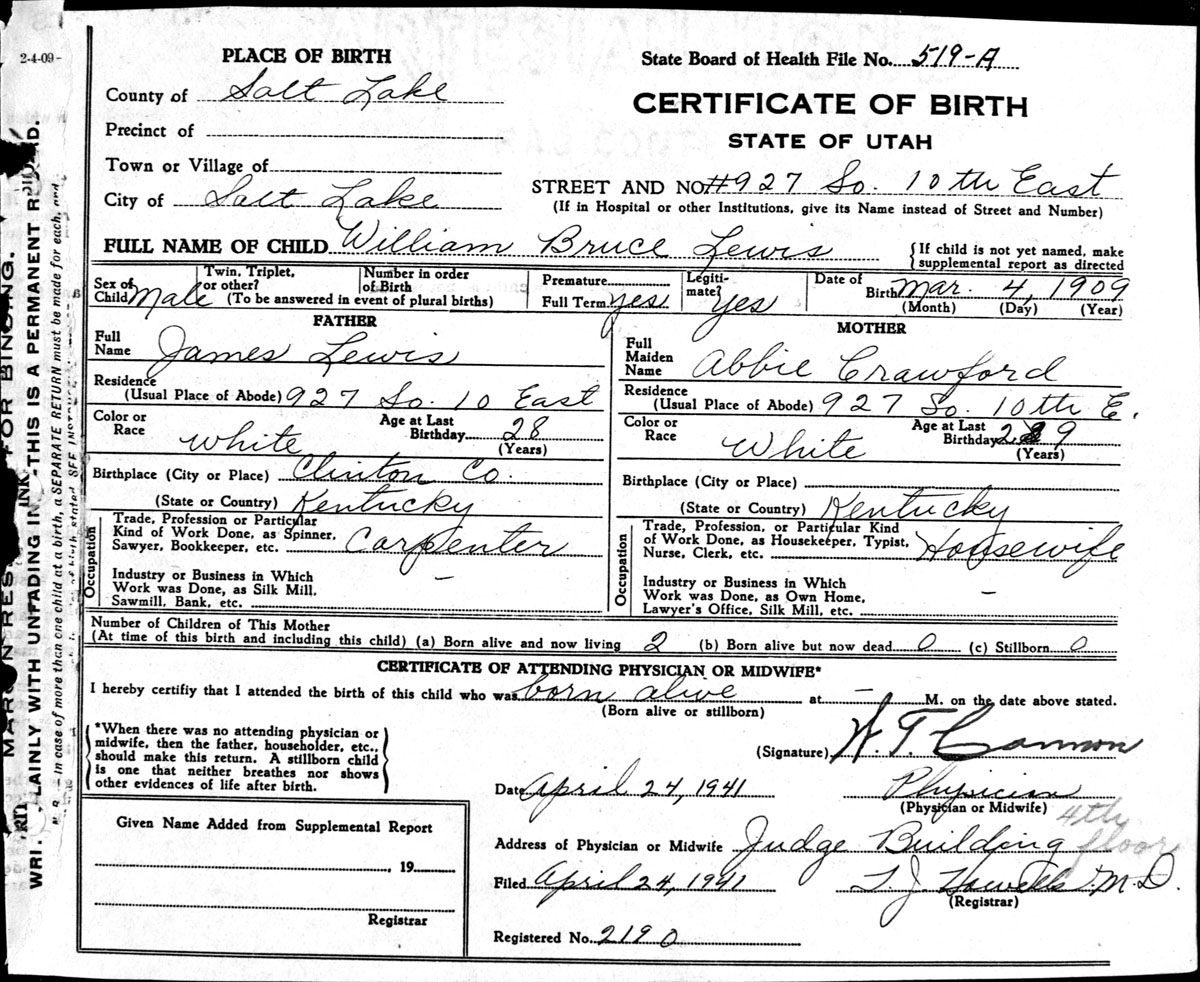 2-4-09-
PLACE OF BIRTH
State Board of Health File No. 519-A
County of Salt Lake
CERTIFICATE OF BIRTH
Precinct of
STATE OF UTAH
Town or Village of
City of Salt Lake
STREET AND NO. #927 So. 10th East
(If in Hospital or other Institutions, give its Name instead of Street and Number)
FULL NAME OF CHILD William Bruce Lewis
{If child is not yet named, make
supplemental report as directed
Sex of Child Male
Twin, Triplet, or other?
Number in order of Birth
(To be answered in event of plural births)
Premature
Full Term yes
Legiti-mate? Yes
Date of Birth Mar. 4, 1909
(Month) (Day) (Year)
FATHER
Full Name James Lewis
Residence
(Usual Place of Abode) 927 So. 10 East
Color or Race White
Age at Last Birthday 28
(Years)
Birthplace (City or Place) Clinton Co.
(State or Country) Kentucky
Occupation
Trade, Profession or Particular
Kind of Work Done, as Spinner,
Sawyer, Bookkeeper, etc. Carpenter
Industry or Business in Which
Work was Done, as Silk Mill,
Sawmill, Bank, etc. -
MOTHER
Full Maiden Name Abbie Crawford
Residence
(Usual Place of Abode) 927 So. 10th E.
Color or Race White
Age at Last Birthday 29
(Years)
Birthplace (City or Place)
(State or Country) Kentucky
Occupation
Trade, Profession, or Particular Kind
of Work Done, as Housekeeper, Typist,
Nurse, Clerk, etc. Housewife
Industry or Business in Which
Work was Done, as Own Home,
Lawyer's Office, Silk Mill, etc. -
Number of Children of This Mother
(At time of this birth and including this child) (a) Born alive and now living 2 (b) Born alive but now dead 0 (c) Stillborn 0
CERTIFICATE OF ATTENDING PHYSICIAN OR MIDWIFE*
I hereby certifiy that I attended the birth of this child who was born alive at - M. on the date above stated.
(Born alive or stillborn)
*When there was no attending physician or
midwife, then the father, householder, etc.,
should make this return. A stillborn child
is one that neither breathes nor shows
other evidences of life after birth.
(Signature) W. T. Cannon
Date April 24, 1941 Physician
(Physician or Midwife)
Address of Physician or Midwife Judge Building 4th floor
Filed April 24, 1941 T. J. Howells M.D.
(Registrar)
Registered No. 2190
Given Name Added from Supplemental Report
, 19
Registrar
FOR BINDING.
LAINLY WITH UNFADING IN -THIS IS A PERMANENT R D.
- In case of more than one child at a birth, a SEPARATE RETURN must be made for each, and